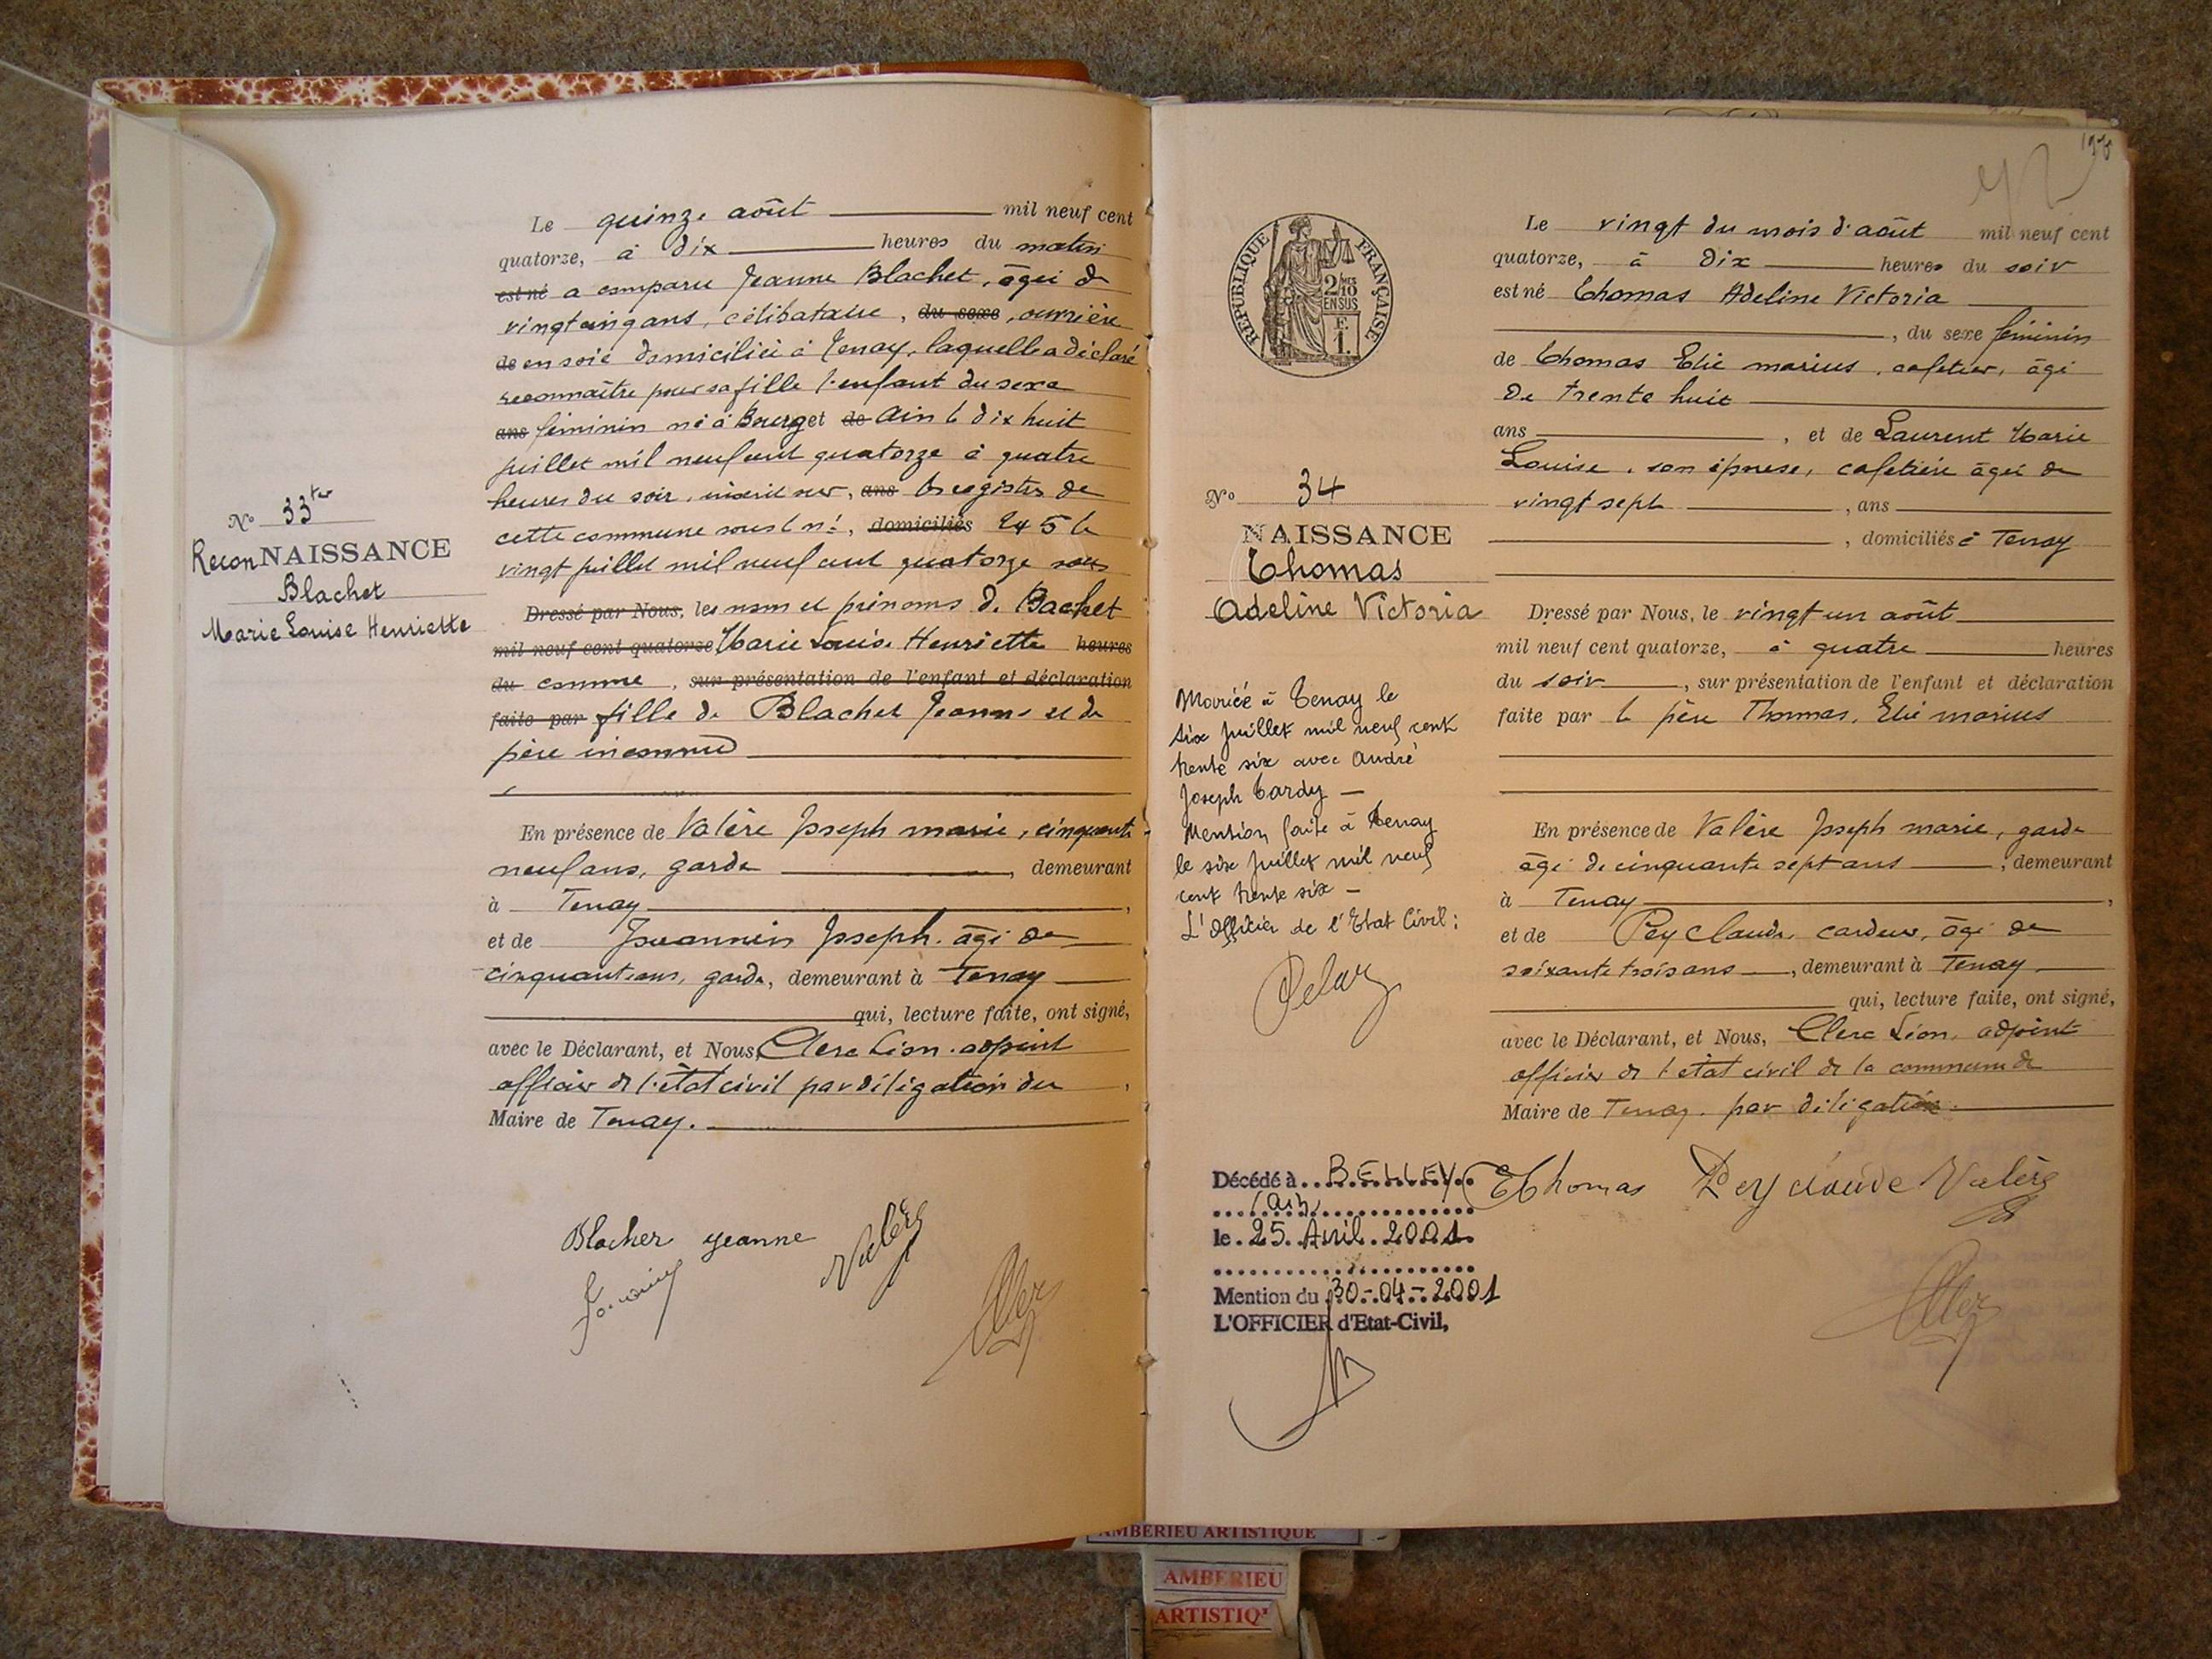 Le quinze août mil neuf cent
quatorze, à dix heures du matin
est né a comparu Jeanne Blachet, âgée de
vingt cinq ans, célibataire, du sexe, ouvrière
de en soie domiciliée à Tenay, laquelle a déclaré
reconnaître pour sa fille l'enfant du sexe
ans féminin né à Bourg et de Ain le dix huit
juillet mil neuf cent quatorze à quatre
heures du soir, inscrit sur, ans les registres de
cette commune sous le n°, domiciliés 245 le
vingt juillet mil neuf cent quatorze sous
Dressé par Nous, les nom et prénoms de Bachet
mil neuf cent quatorze Marie Louise Henriette heures
du comme, sur présentation de l'enfant et déclaration
faite par fille de Blachet Jeanne et de
père inconnu
N° 33ter
ReconNAISSANCE
Blachet
Marie Louise Henriette
En présence de Valère Joseph marie, cinquante
neuf ans, garde, demeurant
à Tenay,
et de Joseph. âgé de
cinquante ans, garde, demeurant à Tenay
qui, lecture faite, ont signé,
avec le Déclarant, et Nous, Clerc Léon. adjoint
officier de l'état civil par délégation du,
Maire de Tenay.
Blachet Jeanne Valère
Clerc
RÉPUBLIQUE FRANÇAISE
2/10MES
EN SUS
F.
1.
N° 34
NAISSANCE
Thomas
Adeline Victoria
Mariée à Tenay le
six Juillet mil neuf cent
trente six avec André
Joseph Tardy —
Mention faite à Tenay
le six Juillet mil neuf
cent trente six —
L'Officier de l'Etat Civil:
Décédé à BELLEY
(Ain)
le 25 Avril 2001
Mention du 30-04-2001
L'OFFICIER d'Etat-Civil,
Le vingt du mois d'août mil neuf cent
quatorze, à dix heures du soir
est né Thomas Adeline Victoria
, du sexe féminin
de Thomas Elie marius, cafetier, âgé
de trente huit
ans, et de Laurent Marie
Louise, son épouse, cafetière âgée de
vingt sept, ans
, domiciliés à Tenay
Dressé par Nous, le vingt un août
mil neuf cent quatorze, à quatre heures
du soir, sur présentation de l'enfant et déclaration
faite par le père Thomas, Elie marius
En présence de Valère Joseph marie, garde
âgé de cinquante sept ans, demeurant
à Tenay,
et de Pey Claude, cardeur, âgé de
soixante trois ans, demeurant à Tenay
qui, lecture faite, ont signé,
avec le Déclarant, et Nous, Clerc Léon, adjoint
officier de l'état civil de la commune de
Maire de Tenay. par délégation.
EThomas Pey claude Valère
Clerc
AMBERIEU ARTISTIQUE
AMBERIEU
ARTISTIQ